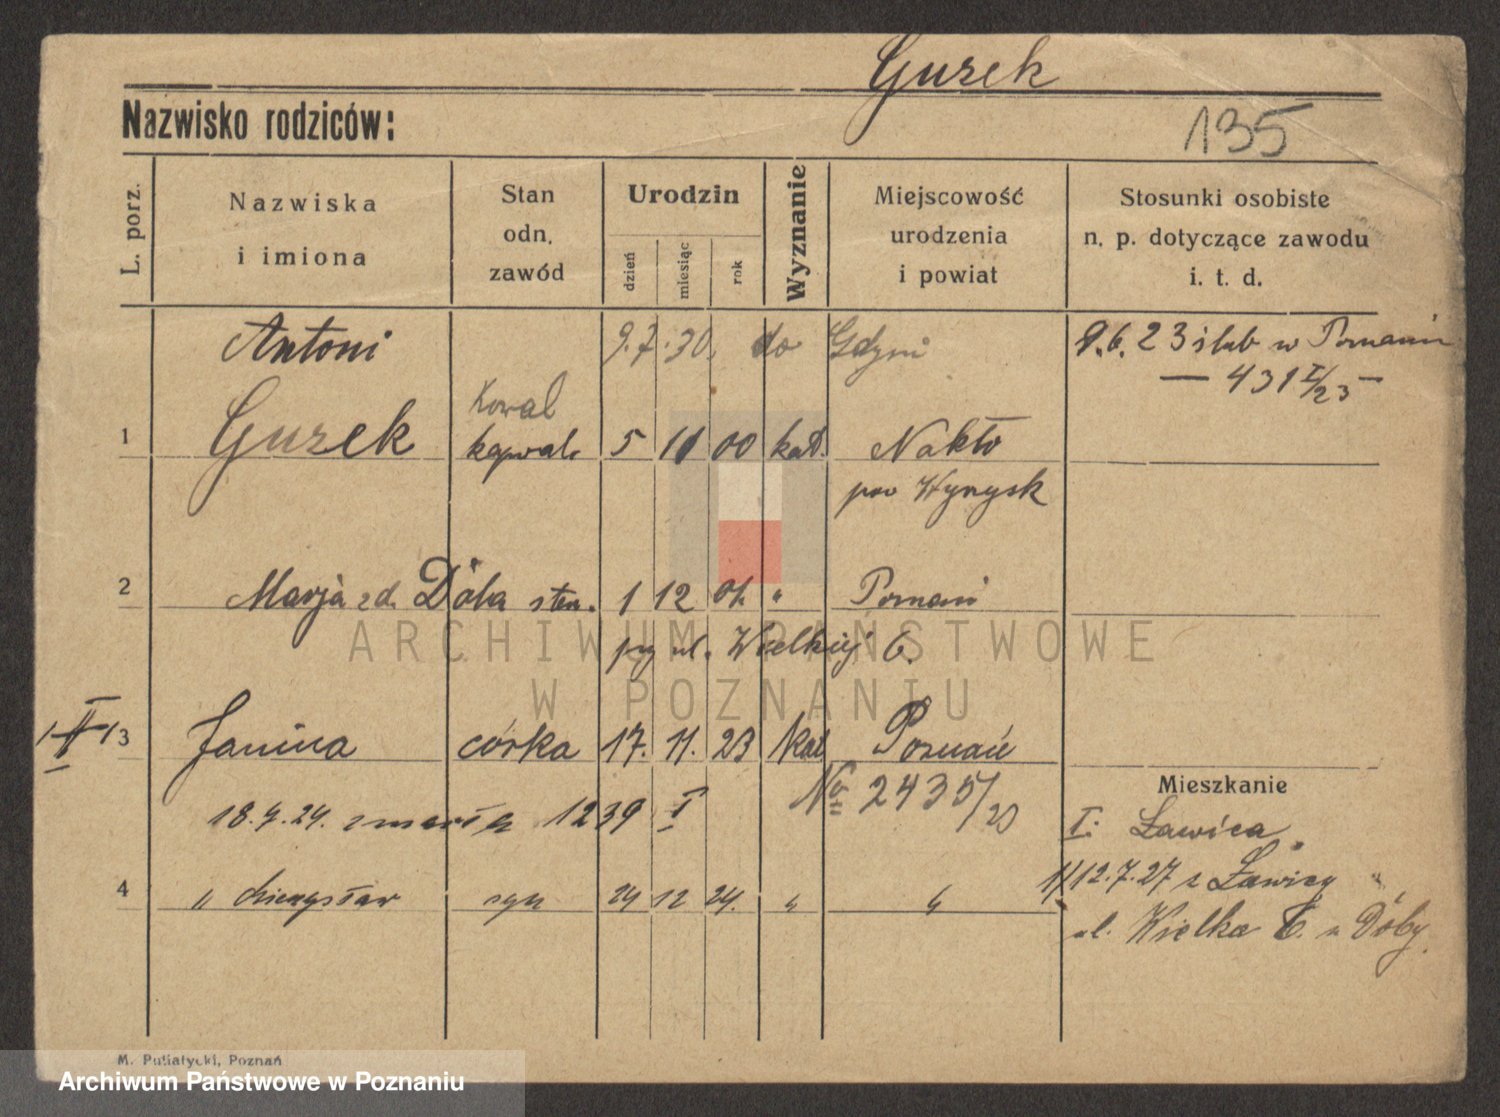 Gurek
Nazwisko rodziców:
135
L. porz.
Nazwiska
i imiona
Stan
odn.
zawód
Urodzin
dzień
miesiąc
rok
Wyznanie
Miejscowość
urodzenia
i powiat
Stosunki osobiste
n. p. dotyczące zawodu
i. t. d.
Antoni 9.7.30. do Gdyni 9.6.23 ślub w Poznaniu
— 431 I/23 —
Kowal
1 Gurek 5 11 00 kat. Nakło
pow Wyrzysk
2 Marja zd. Dóba 1 12 01. " Poznań
przy ul. Wielkiej 6.
3 Janina córka 17. 11. 23 kat Poznań
No 2435/23
18.4.24. zmarła 1239 I
Mieszkanie
I: Ławica
4 " syn 24 12 24. " "
12.7.27 z Ławicy
ul. Wielka 6. u Dóby.
M. Putiatycki, Poznań
ARCHIWUM PAŃSTWOWE
W POZNANIU
Archiwum Państwowe w Poznaniu